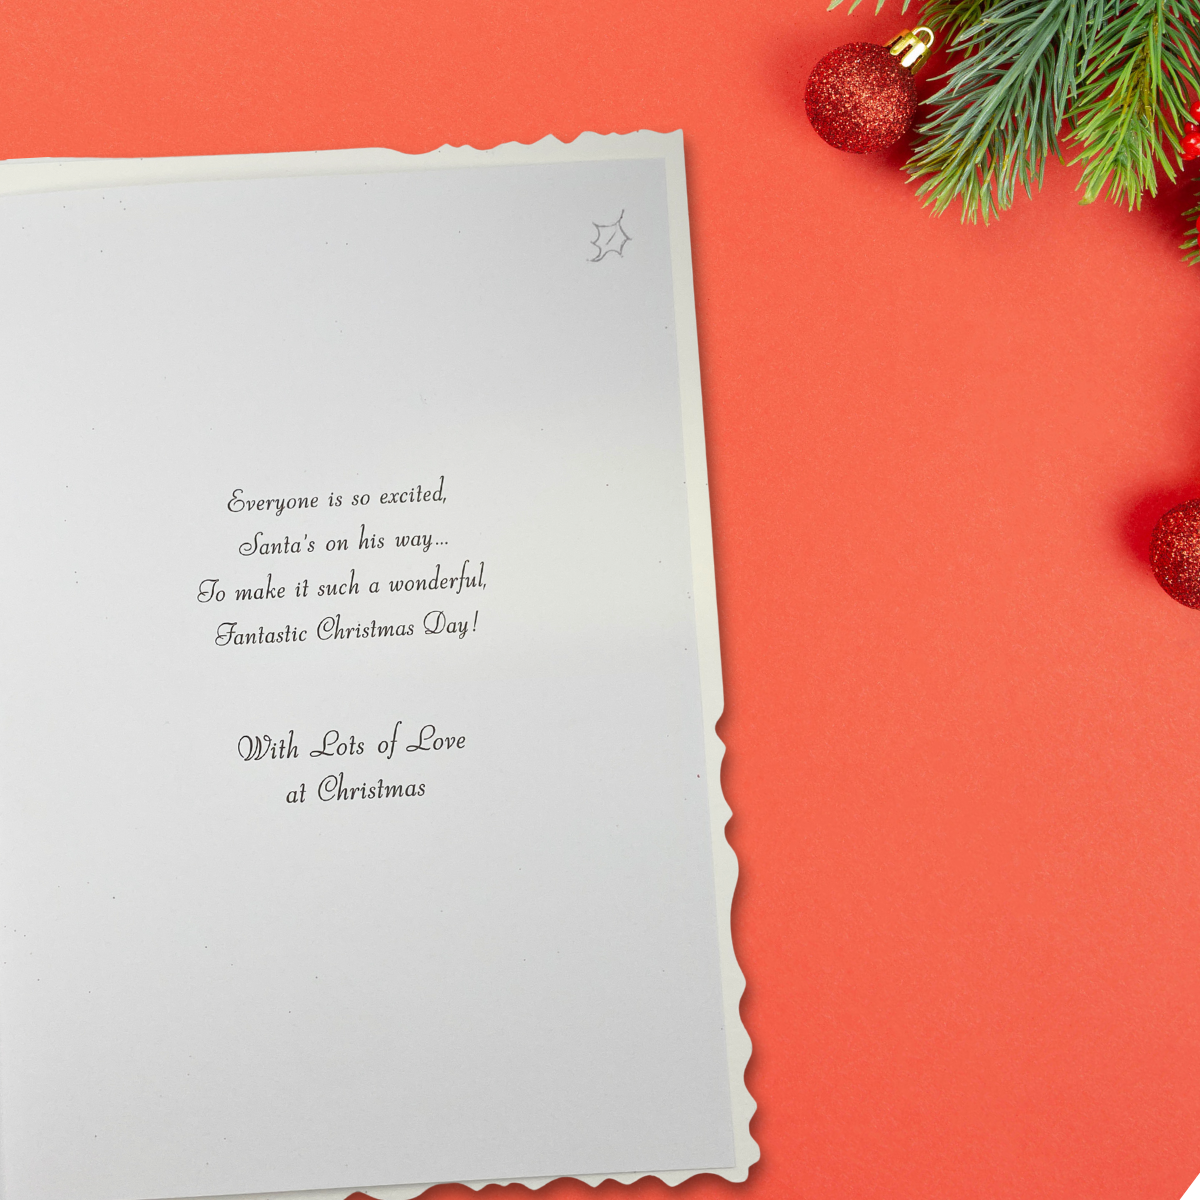 Everyone is so excited,
Santa's on his way...
To make it such a wonderful,
Fantastic Christmas Day!
With Lots of Love
at Christmas